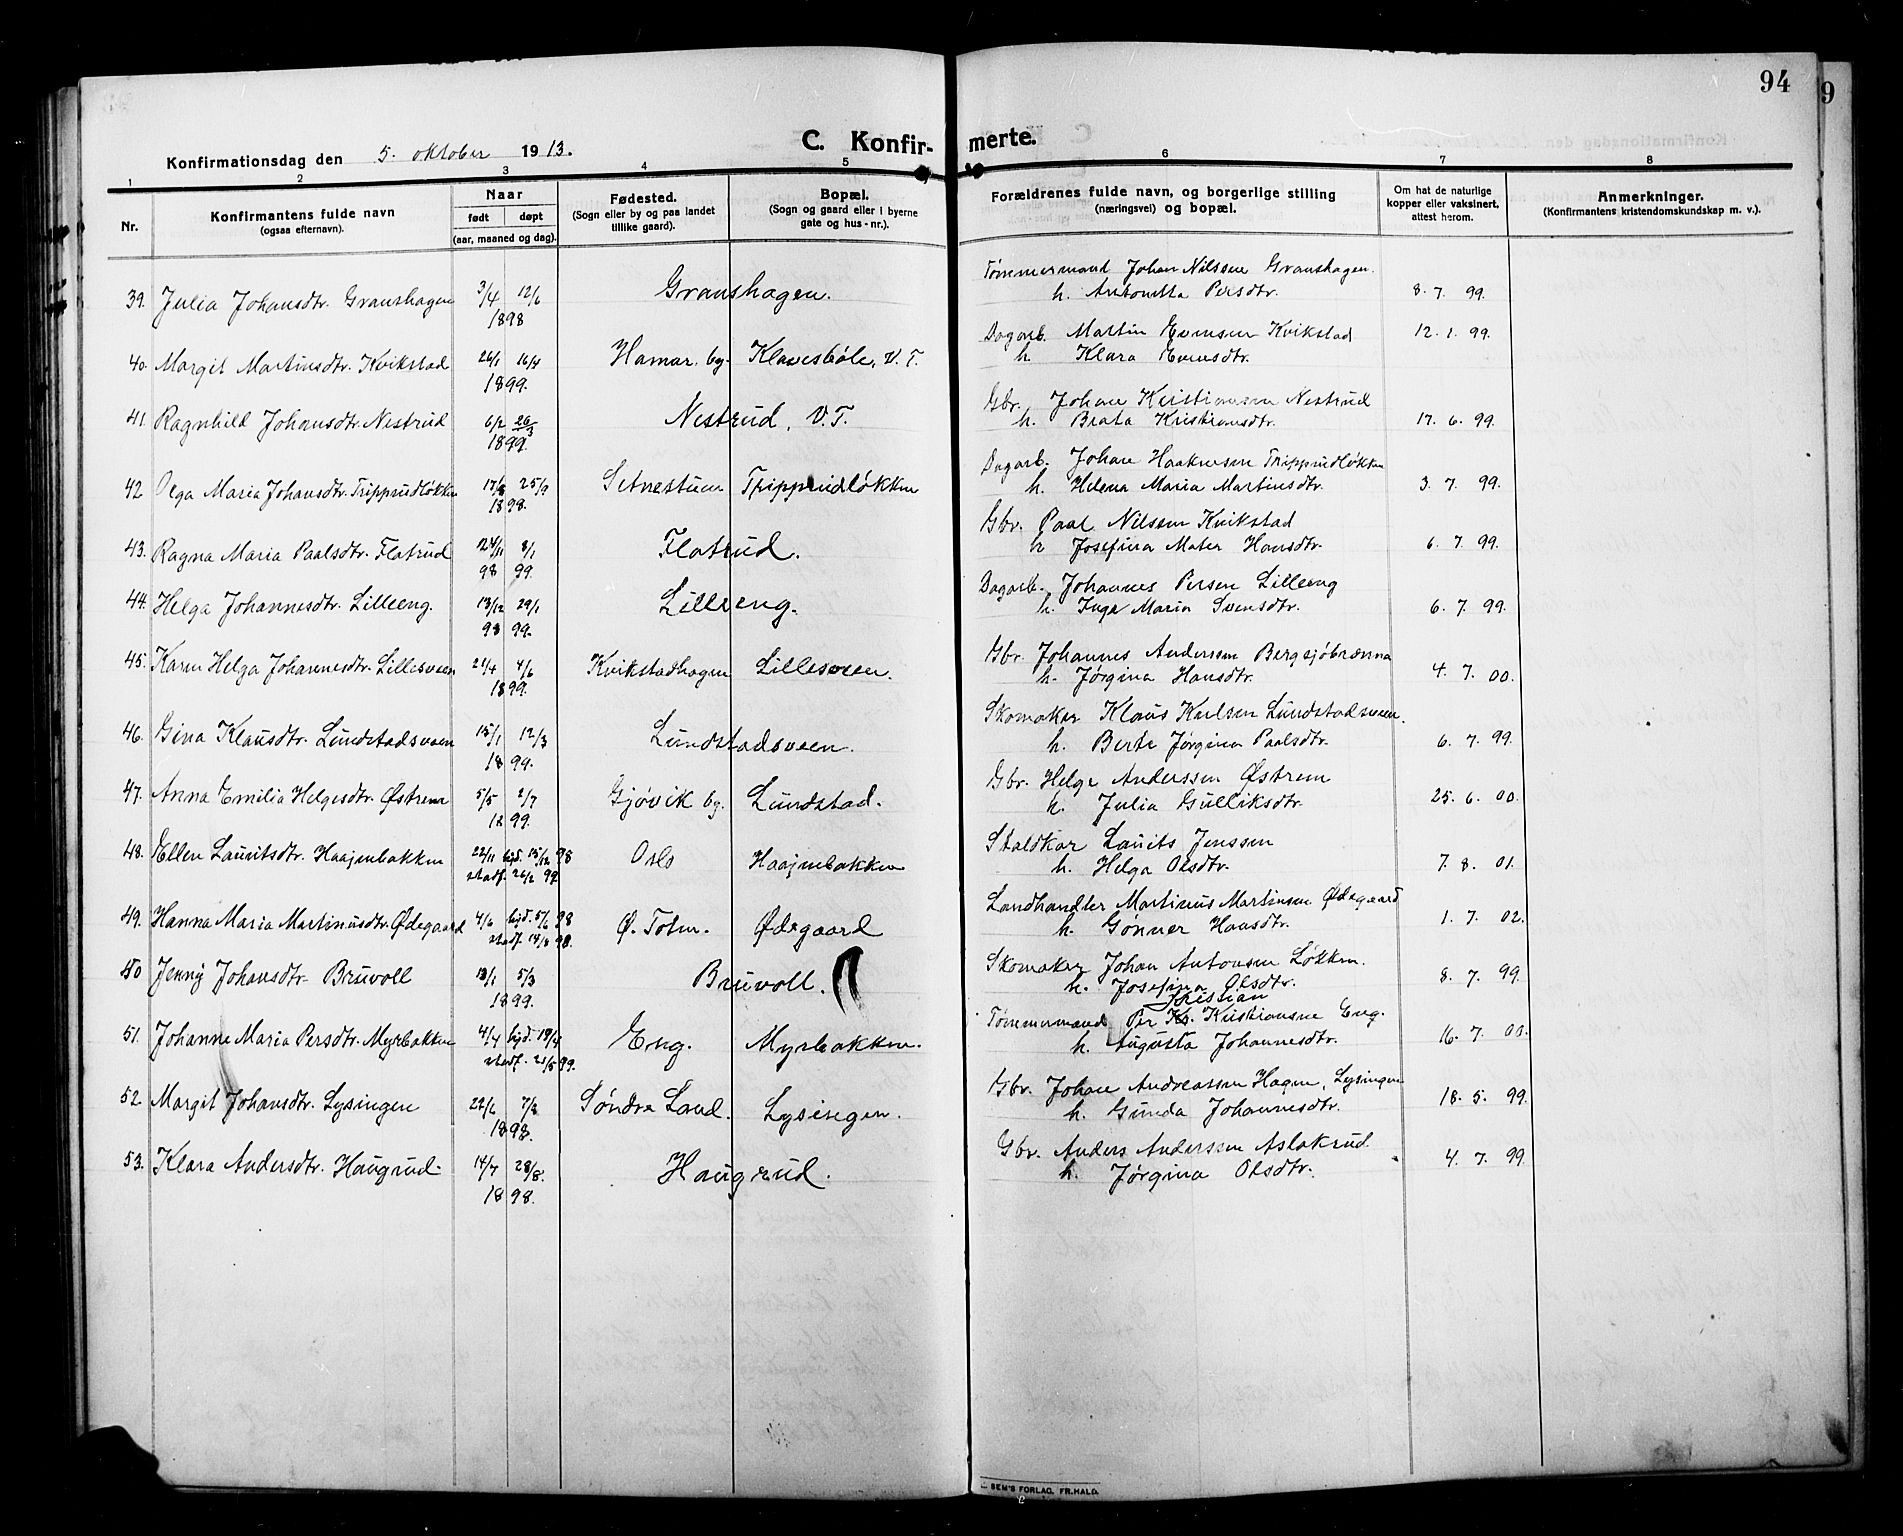 94
9
C. Konfirmerte.
Konfirmationsdag den 5. oktober 1913.
1 2 3 4 5 6 7 8
Nr.
Konfirmantens fulde navn
(ogsaa efternavn).
Naar
født døpt
(aar, maaned og dag).
Fødested.
(Sogn eller by og paa landet
tillike gaard).
Bopæl.
(Sogn og gaard eller i byerne
gate og hus-nr.).
Forældrenes fulde navn, og borgerlige stilling
(næringsvei) og bopæl.
Om hat de naturlige
kopper eller vaksinert,
attest herom.
Anmerkninger.
(Konfirmantens kristendomskundskap m. v.).
39. Julia Johansdtr. Granshagen 3/4 12/6 Granshagen. Tømmermand Johan Nilssen Granshagen.
1898 h. Antonetta Persdtr. 8. 7. 99.
40. Margit Martinsdtr. Kvikstad 26/1 16/4 Hamar by. Klavesbøle, V. T. Dagarb. Martin Evensen Kvikstad 12. 1. 99.
1899. h. Klara Evensdtr.
41. Ragnhild Johansdtr. Nestrud 6/2 26/3 Nestrud, V. T. Gbr. Johan Kristiansen Nestrud
1899. h. Beata Kristiansdtr. 17. 6. 99.
42. Olga Maria Johansdtr. Trippsrudløkken 17/8 25/9 Setnestuen Trippsrudløkken Dagarb. Johan Haakensen Trippsrudløkken
1898. h. Helena Maria Martinsdtr. 3. 7. 99.
43. Ragna Maria Paalsdtr. Flatrud 24/11 8/1 Flatrud. Gbr. Paal Nilsen Kvikstad
98 99. h Josefina Mater Hansdtr. 6. 7. 99.
44. Helga Johannesdtr. Lilleeng. 13/12 29/1 Lilleeng. Dagarb. Johannes Persen Lilleeng
98 99. h. Inga Maria Svensdtr. 6. 7. 99.
45. Karen Helga Johannesdtr. Lillesveen 21/4 4/6 Kvikstadhagen Lillesveen. Gbr. Johannes Anderssen Bergsjøbrænna
1899. h. Jørgina Hansdtr. 4. 7. 00.
46. Gina Klausdtr. Lundstadsveen 15/1 12/3 Lundstadsveen. Skomaker Klaus Karlsen Lundstadsveen.
1899. h. Berte Jørgina Paalsdtr. 6. 7. 99.
47. Anna Emilia Helgesdtr. Østrem 5/5 2/7 Gjøvik by. Lundstad. Gbr. Helge Anderssen Østrem
1899. h. Julia Gulliksdtr. 25. 6. 00.
48. Ellen Lauritsdtr. Haajenbakken 22/11 hjd. 15/12 98 Oslo Haajenbakken Staldkar Laurits Jenssen
stadf. 26/2 99. h. Helga Olsdtr. 7. 8. 01.
49. Hanna Maria Martinusdtr. Ødegaard 4/6 hjd. 5/6 98 Ø. Toten. Ødegaard Landhandler Martinus Martinsen Ødegaard
stadf. 14/8 98. h. Gønner Hansdtr. 1. 7. 02.
50 Jenny Johansdtr. Bruvoll 13/1 5/3 Bruvoll. Skomaker Johan Antonsen Løkken.
1899. h. Josefina Olsdtr. 8. 7. 99.
51. Johanne Maria Persdtr. Myrbakken 4/4 hjd. 19/4 Eng. Myrbakken. Tømmermand Per Kr. Kristian Kristiansen Eng.
stadf. 21/5 99. h. Augusta Johannesdtr. 16. 7. 00.
52. Margit Johansdtr. Lysingen 22/6 7/8 Søndre Land. Lysingen. Gbr. Johan Andreassen Hagen, Lysingen
1898. h. Gunda Johannesdtr. 18. 5. 99.
53. Klara Andersdtr. Haugrud. 14/7 28/8. Haugrud. Gbr. Anders Anderssen Aslakrud.
1898. h. Jørgina Olsdtr. 4. 7. 99.
SEM'S FORLAG, FR.HALD.